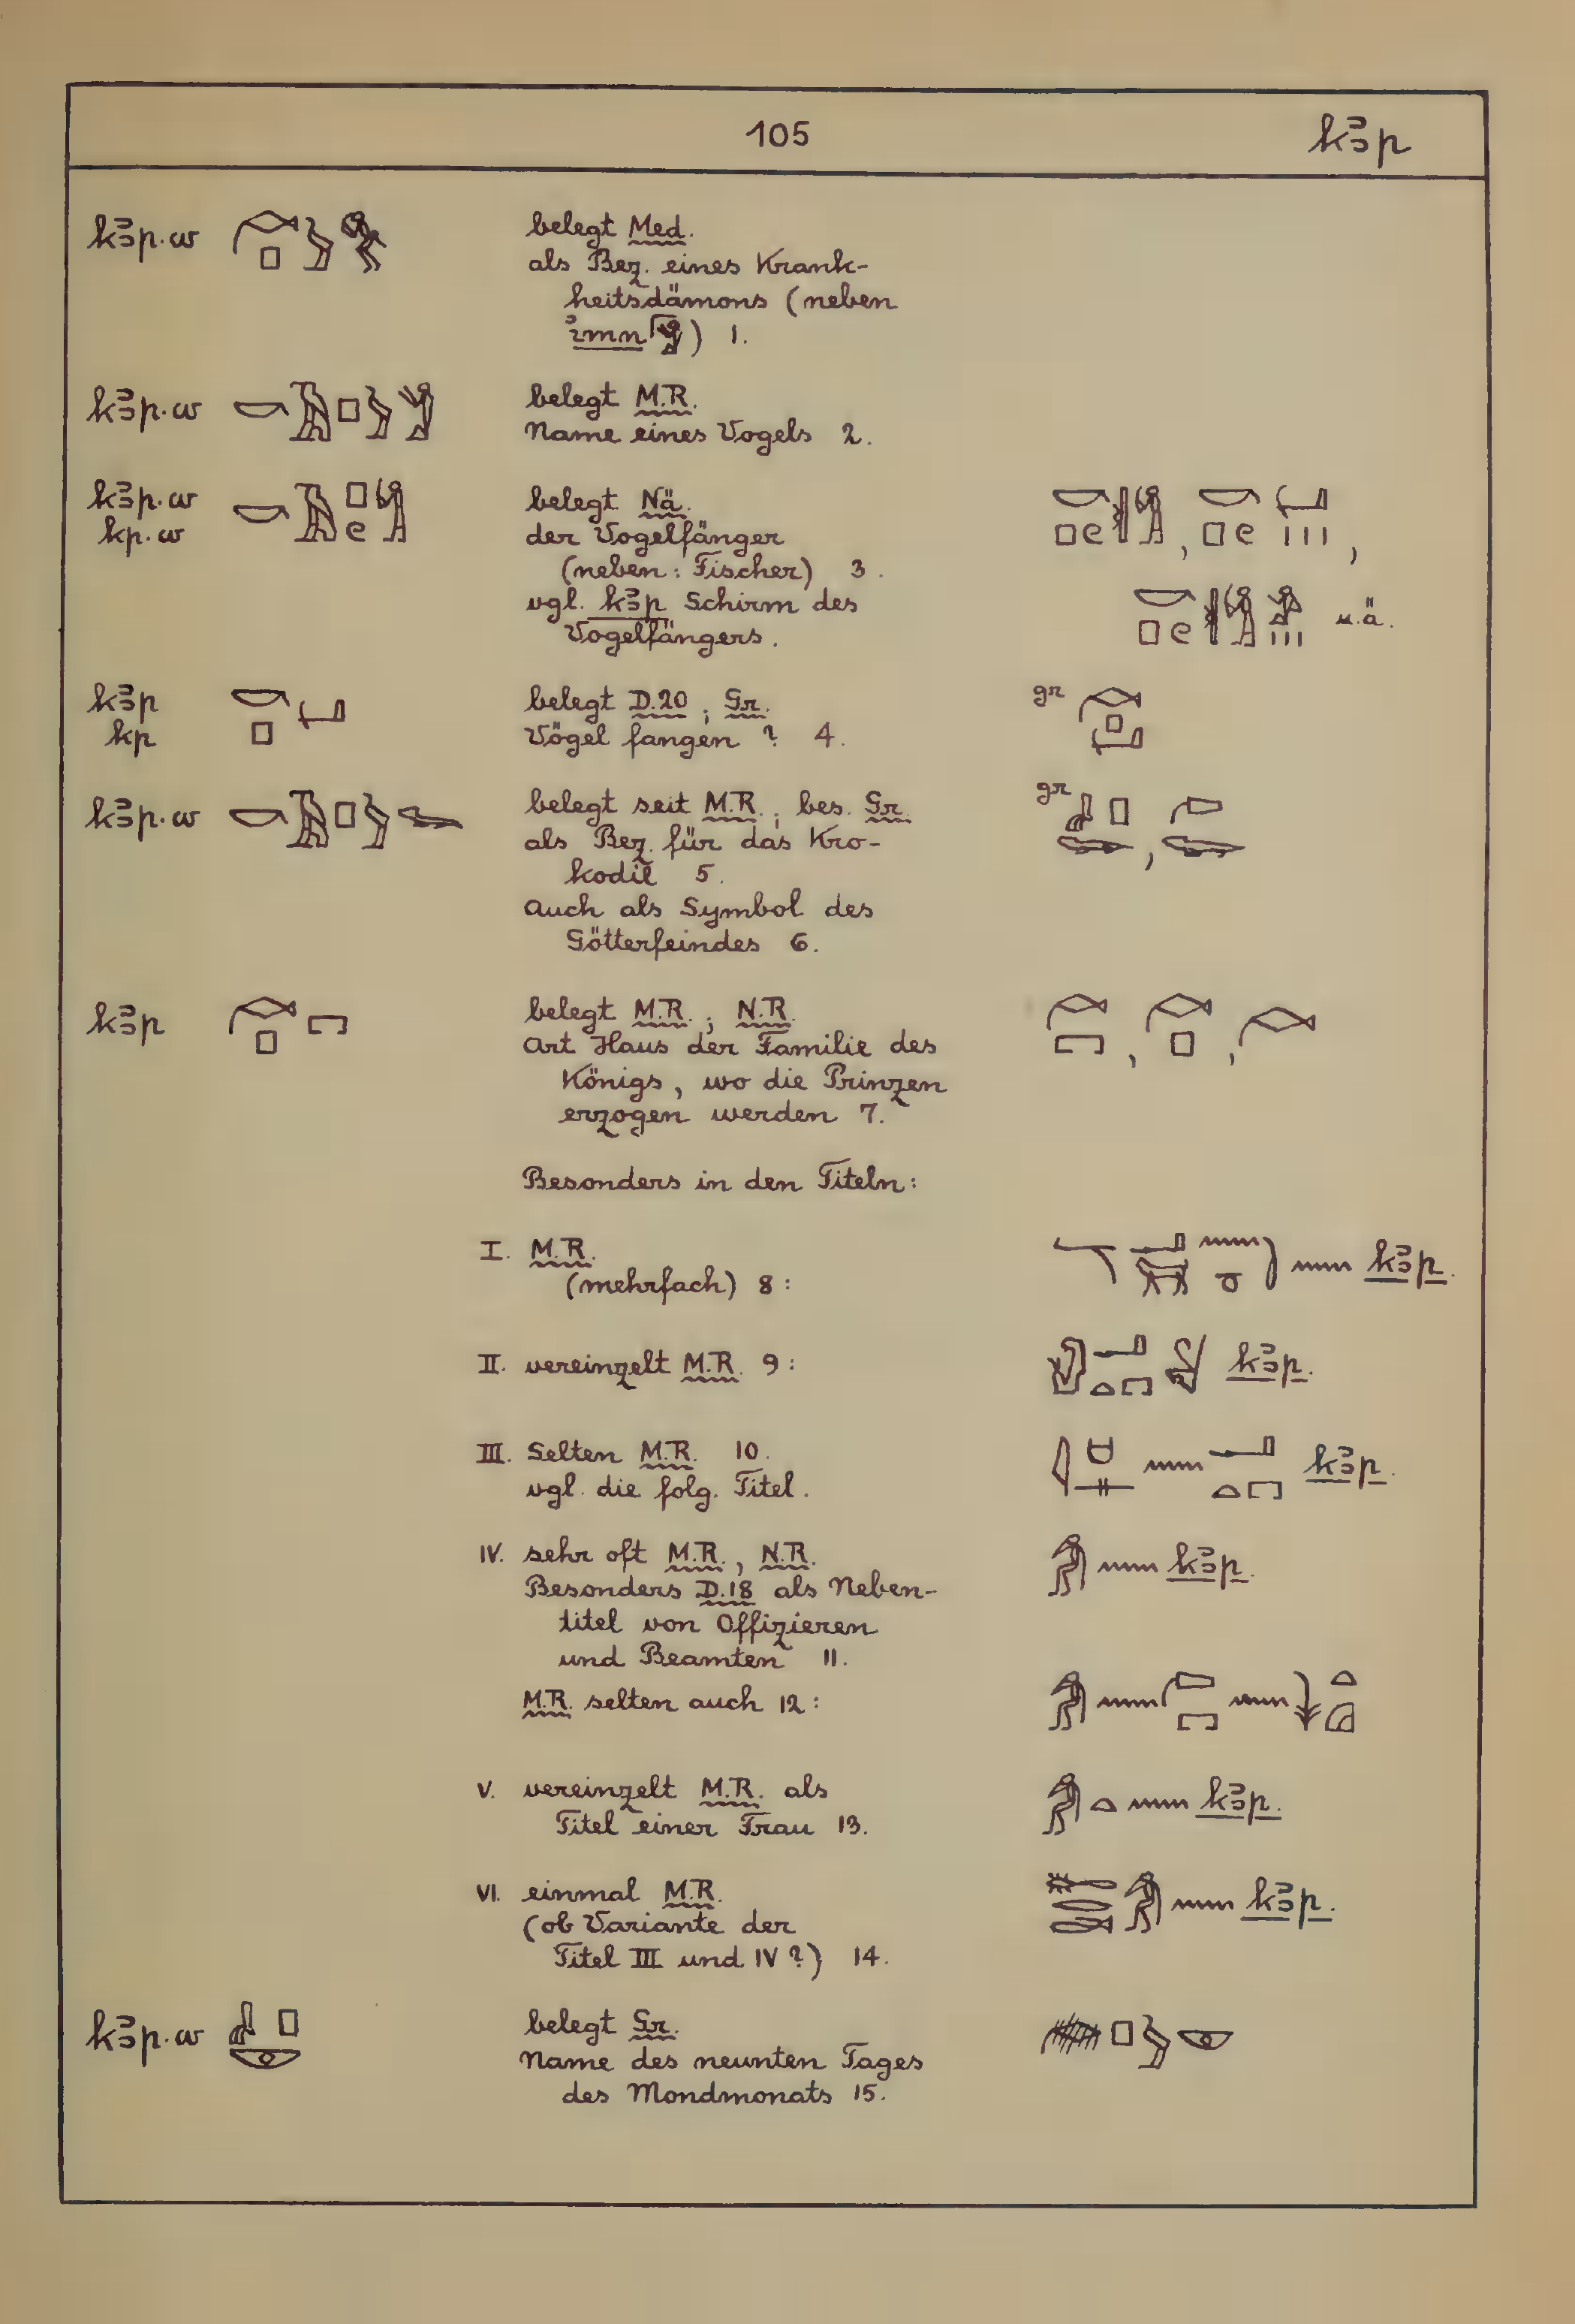 105 kꜣp
kꜣp.w belegt Med.
als Bez. eines Krank-
heitsdämons (neben
imn ) 1.
kꜣp.w belegt M.R.
Name eines Vogels 2.
kꜣp.w belegt Nä.
kp.w der Vogelfänger
(neben: Fischer) 3.
vgl. kꜣp Schirm des
Vogelfängers. u.ä.
kꜣp belegt D.20; Gr. gr
kp Vögel fangen? 4.
kꜣp.w belegt seit M.R.; bes. Gr. gr
als Bez. für das Kro-
kodil 5.
Auch als Symbol des
Götterfeindes 6.
kꜣp belegt M.R.; N.R.
Art Haus der Familie des
Königs, wo die Prinzen
erzogen werden 7.
Besonders in den Titeln:
I. M.R.
(mehrfach) 8: kꜣp.
II. vereinzelt M.R. 9: kꜣp.
III. Selten M.R. 10. kꜣp.
vgl. die folg. Titel.
IV. sehr oft M.R., N.R. kꜣp.
Besonders D.18 als Neben-
titel von Offizieren
und Beamten 11.
M.R. selten auch 12:
V. vereinzelt M.R. als kꜣp.
Titel einer Frau 13.
VI. einmal M.R. kꜣp.
(ob Variante der
Titel III und IV?) 14.
kꜣp.w belegt Gr.
Name des neunten Tages
des Mondmonats 15.